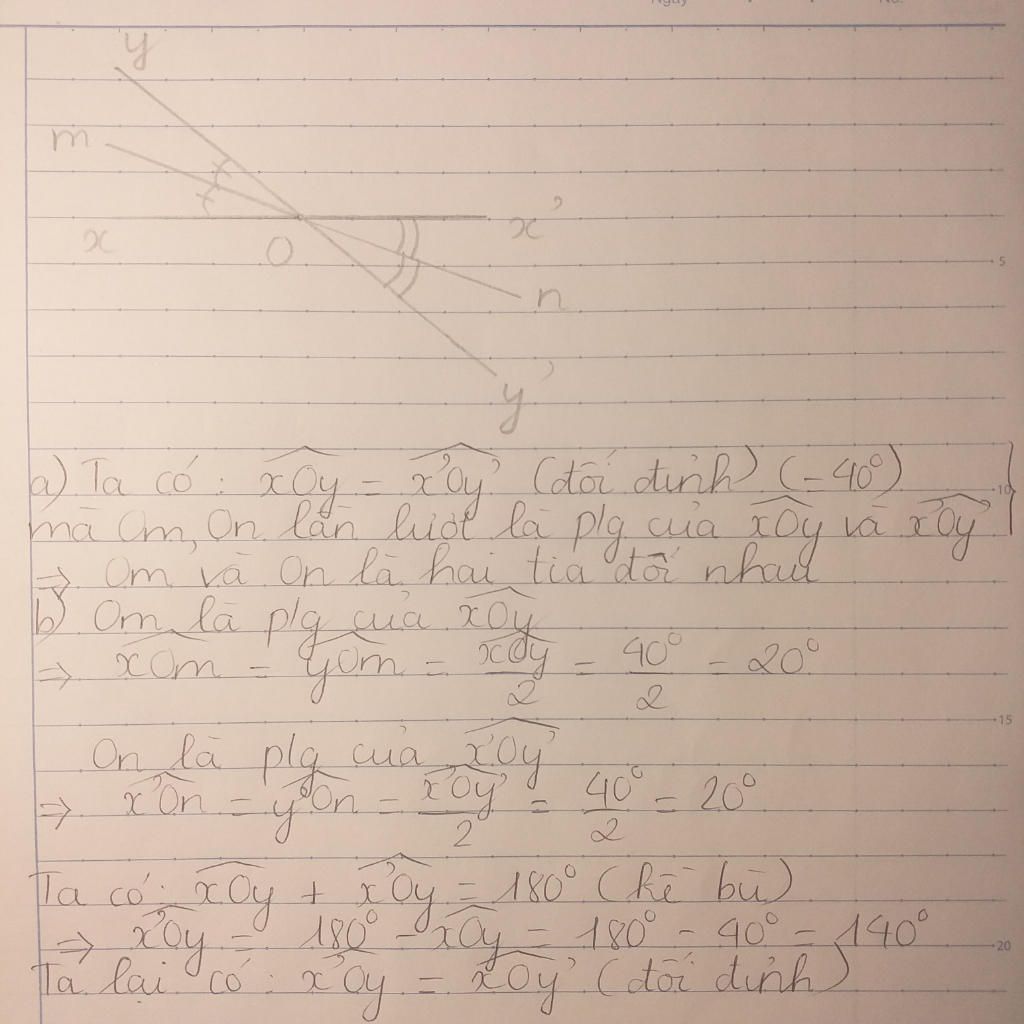 Ngày No.
y
m
x
O
x'
n
y'
5
a) Ta có: xOy = x'Oy' (đối đỉnh) (=40°)
10
mà Om, On lần lượt là p/g của xOy và x'Oy'
=> Om và On là hai tia đối nhau
b) Om là p/g của xOy
=> xOm = yOm = xOy/2 = 40°/2 = 20°
15
On là p/g của x'Oy'
=> x'On = y'On = x'Oy'/2 = 40°/2 = 20°
Ta có: xOy + x'Oy = 180° (kề bù)
=> x'Oy = 180° - xOy = 180° - 40° = 140°
20
Ta lại có: x'Oy = xOy' (đối đỉnh)